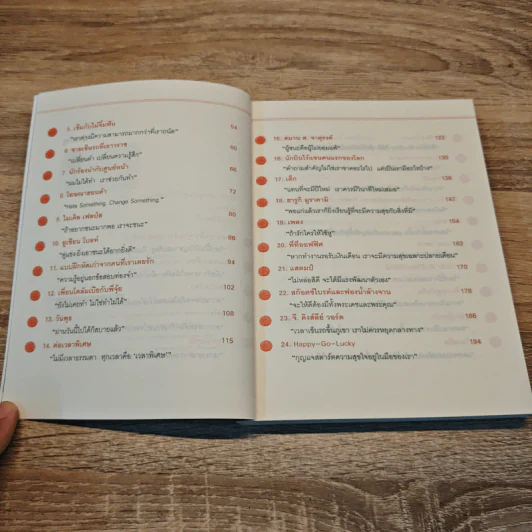 5. เข็มกับไม้จิ้มฟัน 54
"เราต่างมีความสามารถมากกว่าที่เราถนัด"
6. ชายเข็นรถที่เยาวราช 60
"เปลี่ยนคำ เปลี่ยนความรู้สึก"
7. นักร้องนำกับศูนย์หน้า 66
"ผมไม่ได้ทำ เราช่วยกันทำ"
8. โฆษณาสอนค่า 72
"Hate Something, Change Something."
9. ไมเคิล เฟลป์ส 80
"ถ้าอยากชนะมากพอ เราจะชนะ"
10. ยูเซียน โบลท์ 88
"คู่แข่งยิ่งเอาชนะได้ยากยิ่งดี"
11. แบบฝึกหัดเก่าจากคนที่เราเคยรัก 94
"ความรู้อยู่นอกข้อสอบท่องจำ"
12. เพื่อนโคล้มเบียกับพี่จุ้ย 102
"ยังไม่เคยทำ ไม่ใช่ทำไม่ได้"
13. วันพุธ 108
"ผ่านวันนี้ไปได้ก็สบายแล้ว"
14. ต่อเวลาพิเศษ 115
"ไม่มีเวลาธรรมดา ทุกเวลาคือ 'เวลาพิเศษ'"
15. สมาน ส. จาตุรงค์ 122
"ผู้ชนะคือผู้ไม่ยอมแพ้"
16. นักบินไร้แขนคนแรกของโลก 130
"คำถามสำคัญไม่ใช่เราขาดอะไรไป แต่เป็นเรามีอะไรบ้าง"
17. เด็ก 138
"แทนที่จะมีปีใหม่ เราควรมีวินาทีใหม่เสมอ"
18. ฮารูกิ มูราคามิ 148
19. เพลง 154
"ถ้ารักใครให้ใช้หู"
20. พี่ที่ออฟฟิศ 162
"หากทำงานรอรับเงินเดือน เราจะมีความสุขเฉพาะปลายเดือน"
21. แสตมป์ 170
"ไม่หล่อสิดี จะได้มีแรงพัฒนาตัวเอง"
22. สก๊อตช์ไบรต์และฟองน้ำล้างจาน 178
"จะให้ดีต้องมีทั้งพระเดชและพระคุณ"
23. จี. คิงส์ลีย์ วอร์ด 186
"เวลาเข็นรถขึ้นภูเขา เราไม่ควรหยุดกลางทาง"
24. Happy-Go-Lucky 194
"กุญแจสตาร์ตความสุขใจอยู่ในมือของเรา"